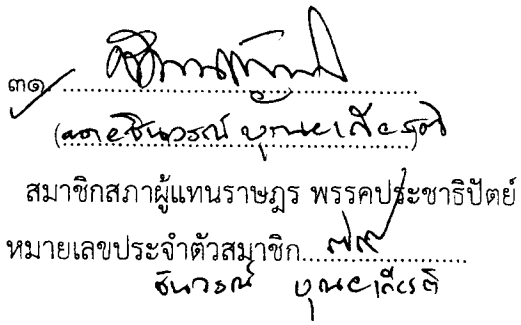 ๓๑.
(นายชินวรณ์ บุณยเกียรติ)
สมาชิกสภาผู้แทนราษฎร พรรคประชาธิปัตย์
หมายเลขประจำตัวสมาชิก....๗๙....
ชินวรณ์ บุณยเกียรติ